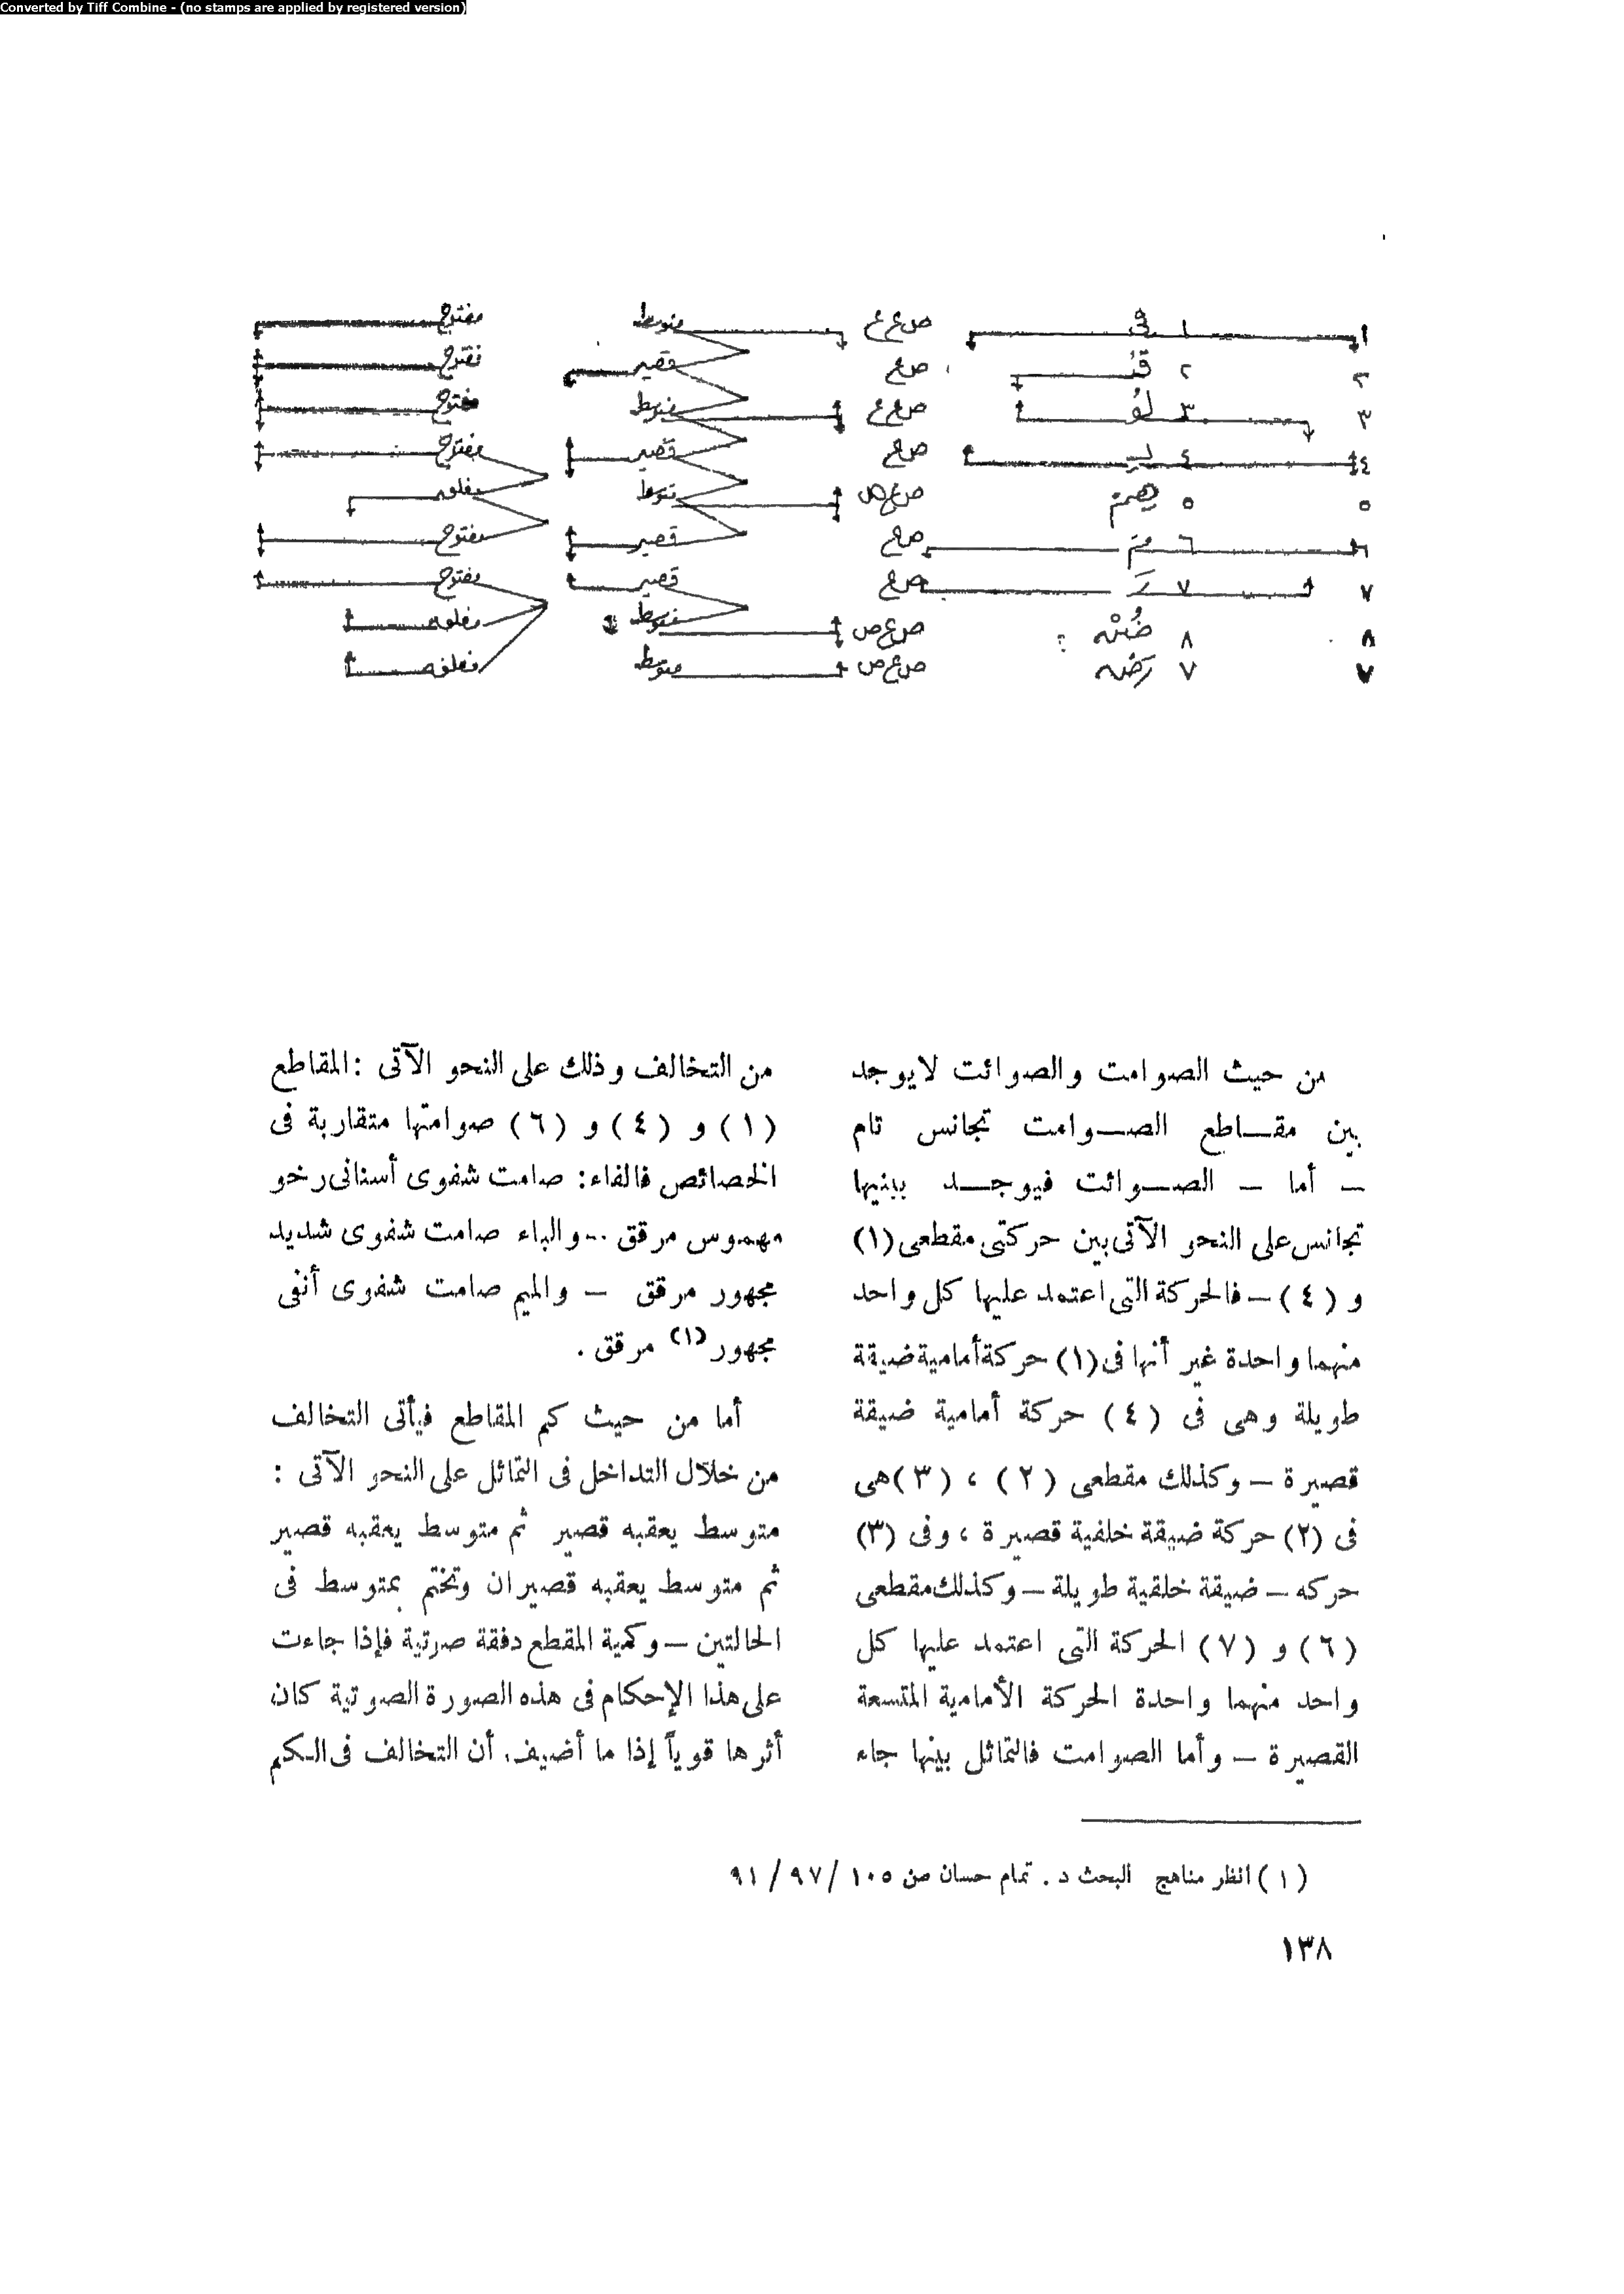 Converted by Tiff Combine - (no stamps are applied by registered version)
١ ١ فى ص ع ع متوسط مفتوح
٢ ٢ قُ ص ع قصير مفتوح
٣ ٣ لُو ص ع ع متوسط مفتوح
٤ ٤ بِ ص ع قصير مفتوح
٥ ٥ ص ع ص متوسط مغلق
٦ ٦ مَ ص ع قصير مفتوح
٧ ٧ رَ ص ع قصير مفتوح
٨ ٨ ص ع ص متوسط مغلق
٧ ٧ ص ع ص متوسط مغلق
من حيث الصوامت والصوائت لايوجد
بين مقـاطع الصـوامت تجانس تام
— أما — الصـوائت فيوجـد بينها
تجانس على النحو الآتى بين حركتى مقطعى (١)
و (٤) — فالحركة التى اعتمد عليها كل واحد
منهما واحدة غير أنها فى (١) حركة أمامية ضيقة
طويلة وهى فى (٤) حركة أمامية ضيقة
قصيرة — وكذلك مقطعى (٢) ، (٣) هى
فى (٢) حركة ضيقة خلفية قصيرة ، وفى (٣)
حركه — ضيقة خلقية طويلة — وكذلك مقطعى
(٦) و (٧) الحركة التى اعتمد عليها كل
واحد منهما واحدة الحركة الأمامية المتسعة
القصيرة — وأما الصوامت فالتماثل بينها جاء
من التخالف وذلك على النحو الآتى : المقاطع
(١) و (٤) و (٦) صوامتها متقاربة فى
الخصائص فالفاء : صامت شفوى أسنانى رخو
مهموس مرقق .. والباء صامت شفوى شديد
مجهور مرقق — والميم صامت شفوى أنفى
مجهور (١) مرقق .
أما من حيث كم المقاطع فيأتى التخالف
من خلال التداخل فى التماثل على النحو الآتى :
متوسط يعقبه قصير ثم متوسط يعقبه قصير
ثم متوسط يعقبه قصيران وتختم بمتوسط فى
الحالتين — وكمية المقطع دفقة صرتية فإذا جاءت
على هذا الإحكام فى هذه الصورة الصوتية كان
أثرها قوياً إذا ما أضيف . أن التخالف فى الكم
(١) انظر مناهج البحث د . تمام حسان ص ١٠٥ / ٩٧ / ٩١
١٣٨